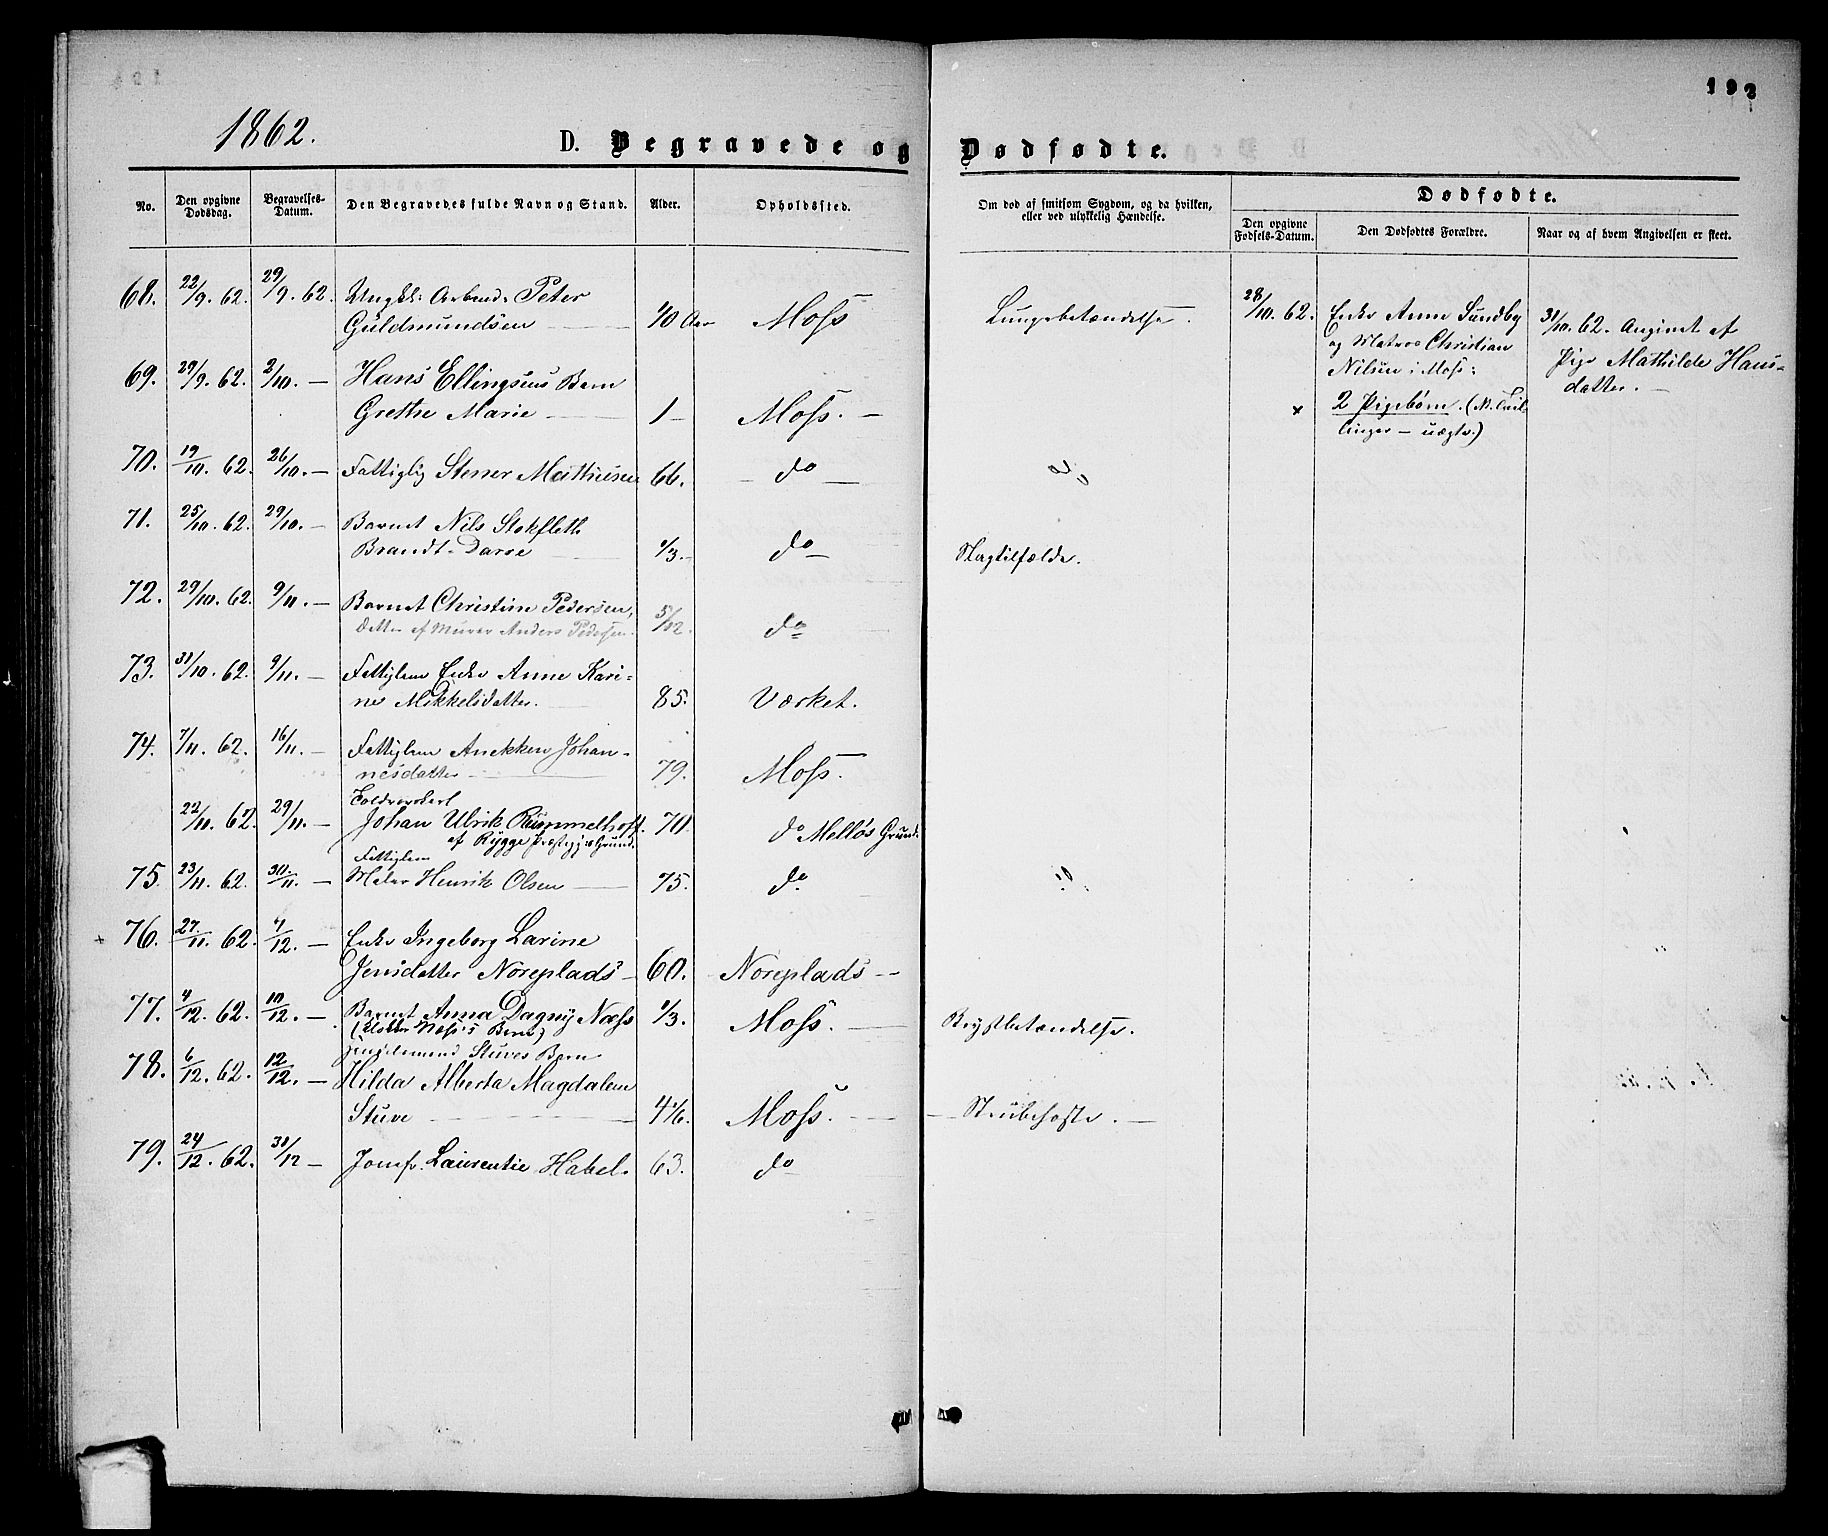 192
1862.
D. Begravede og Dødfødte.
No.
Den opgivne Dødsdag.
Begravelses-Datum.
Den Begravedes fulde Navn og Stand.
Alder.
Opholdssted.
Om død af smitsom Sygdom, og da hvilken, eller ved ulykkelig Hændelse.
Dødfødte.
Den opgivne Fødsels-Datum.
Den Dødfødtes Forældre.
Naar og af hvem Angivelsen er skeet.
68. 22/9. 62. 29/9. 62. Ungk: Arbmd: Peter
Guldmundsen 40 Aar Moss Lungebetændelse.
28/10. 62. Enke Anne Sundby
og Matros Christian
Nilsen i Moss:
× 2 Pigebørn. (M. Tvil
linger — uægte.)
31/10. 62. Angivet af
Pige Mathilde Hans-
datter. —
69. 29/9. 62. 2/10. — Hans Ellingsens Barn
Grethe Marie 1 — Moss. —
70. 19/10. 62. 26/10. — Fattiglig Stener Mathisen 66. do
71. 25/10. 62. 29/10. — Barnet Nils Stokfleth
Brandt-Darre 1/3. do Slagtilfælde.
72. 29/10. 62. 9/11. — Barnet Christine Pedersen,
Datter af Murer Anders Pedersen. 5/12. do
73. 31/10. 62. 9/11. — Fattiglem Enke Anne Kari-
ne Mikkelsdatter. 85. Værket.
74. 7/11. 62. 16/11. — Fattiglem Anekken Johan-
nesdatter 79. Moss.
Toldroerskarl
22/11. 62. 29/11. — Johan Ulrik Rümmelhoff. 70. do Melløs Grund.
af Rygge Præstegj:s Grund.
Fattiglem
75. 23/11. 62. 30/11. — Maler Henrik Olsen 75. do
76. 27/11. 62. 4/12. — Enke Ingeborg Larine
Jensdatter Noreplads 60. Noreplads
77. 4/12. 62. 10/12. — Barnet Anna Dagny Næss 1/3. Moss. Brystbetændelse.
78. 6/12. 62. 12/12. — Stuves Barn
Hilda Alberta Magdalene
Stuve 4 1/6. Moss. — Strubehoste. —
79. 24/12. 62. 31/12 — Jomfr. Laurentie Habel. 63. do